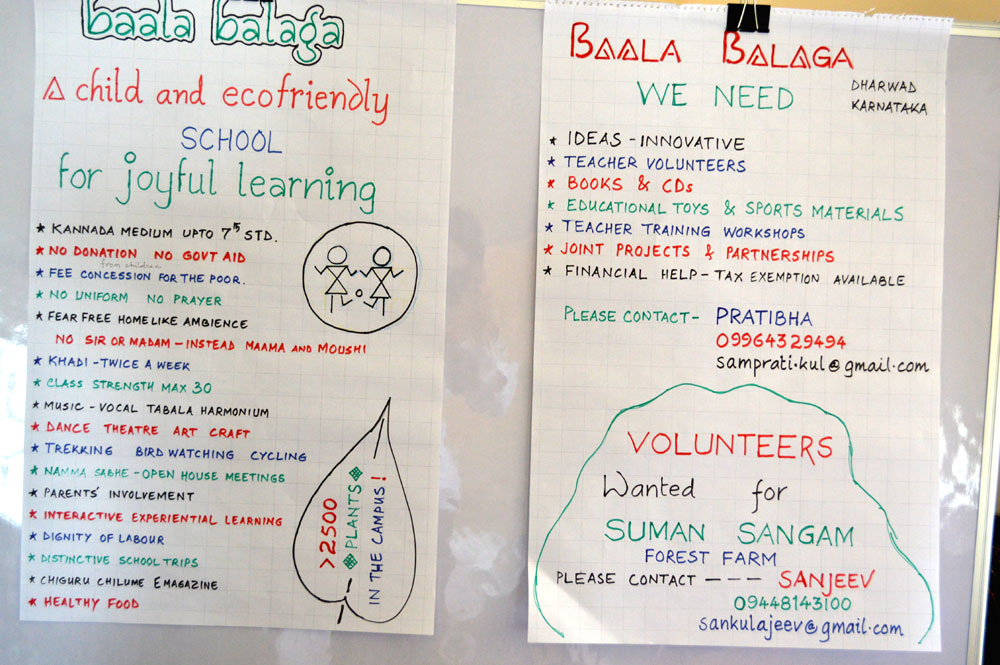 baala balaga
A child and ecofriendly
SCHOOL
for joyful learning
* KANNADA MEDIUM UPTO 7th STD.
* NO DONATION NO GOVT AID
from children
* FEE CONCESSION FOR THE POOR.
* NO UNIFORM NO PRAYER
* FEAR FREE HOMELIKE AMBIENCE
NO SIR OR MADAM - INSTEAD MAAMA AND MOUSHI
* KHADI - TWICE A WEEK
* CLASS STRENGTH MAX 30
* MUSIC - VOCAL TABALA HARMONIUM
* DANCE THEATRE ART CRAFT
* TREKKING BIRD WATCHING CYCLING
* NAMMA SABHE - OPEN HOUSE MEETINGS
* PARENTS' INVOLVEMENT
* INTERACTIVE EXPERIENTIAL LEARNING
* DIGNITY OF LABOUR
* DISTINCTIVE SCHOOL TRIPS
* CHIGURU CHILUME EMAGAZINE
* HEALTHY FOOD
>2500
PLANTS
IN THE CAMPUS!
BAALA BALAGA
WE NEED
DHARWAD
KARNATAKA
* IDEAS - INNOVATIVE
* TEACHER VOLUNTEERS
* BOOKS & CDs
* EDUCATIONAL TOYS & SPORTS MATERIALS
* TEACHER TRAINING WORKSHOPS
* JOINT PROJECTS & PARTNERSHIPS
* FINANCIAL HELP - TAX EXEMPTION AVAILABLE
PLEASE CONTACT - PRATIBHA
09964329494
samprati.kul@gmail.com
VOLUNTEERS
Wanted for
SUMAN SANGAM
FOREST FARM
PLEASE CONTACT --- SANJEEV
09448143100
sankulajeev@gmail.com